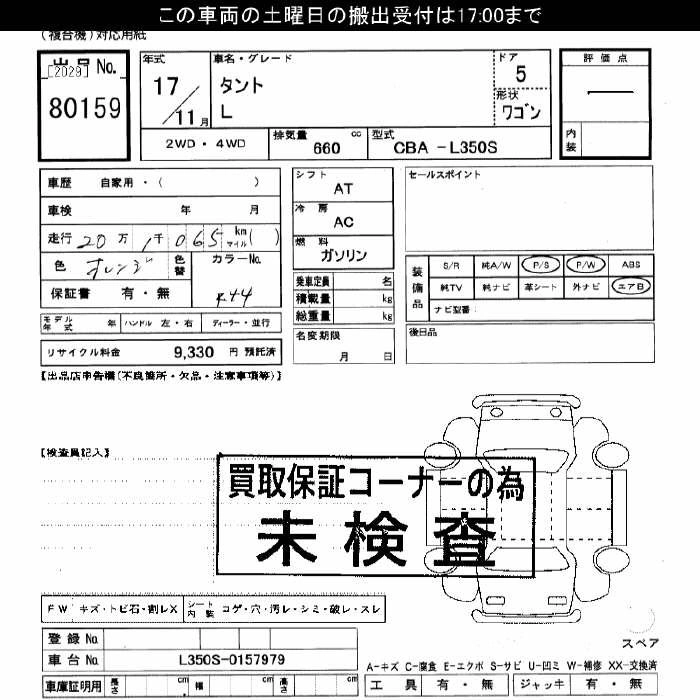 この車両の土曜日の搬出受付は17:00まで
(複合機)対応用紙
出品 No. [2029]
80159
年式 17/11月
車名・グレード
タント
L
ドア 5
形状 ワゴン
評価点
―
内装
2WD・4WD
排気量 660 cc
型式 CBA -L350S
車歴 自家用・( )
車検 年 月
走行 20万1千065 km マイル( )
色 オレンジ 色替
カラーNo. R44
保証書 有・無
モデル年式 年 ハンドル 左・右 ディーラー・並行
リサイクル料金 9,330 円 預託済
シフト AT
冷房 AC
燃料 ガソリン
乗車定員 名
積載量 kg
総重量 kg
名変期限
月 日
セールスポイント
装備品
S/R 純A/W P/S P/W ABS
純TV 純ナビ 革シート 外ナビ エアB
ナビ型番
後日品
【出品店申告欄(不良箇所・欠品・注意事項等)】
【検査員記入】
買取保証コーナーの為
未検査
FW キズ・トビ石・割レX シート内装 コゲ・穴・汚レ・シミ・破レ・スレ
登録No.
車台No. L350S-0157979
車庫証明用 長さ cm 幅 cm 高さ cm
スペア
A-キズ C-腐食 E-エクボ S-サビ U-凹ミ W-補修 XX-交換済
工具 有・無 ジャッキ 有・無